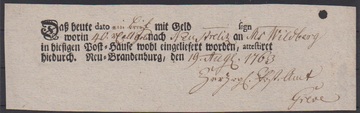 Daß heute dato ein Brief mit Geld sign
worin 40 nach Neustrelitz an Ms Wildberg
in hiesigen Post-Hause wohl eingeliefert worden, attestiret
hiedurch. Neu-Brandenburg, den 19 Aug. 1763
Herzogl. Post-Amt
Greve